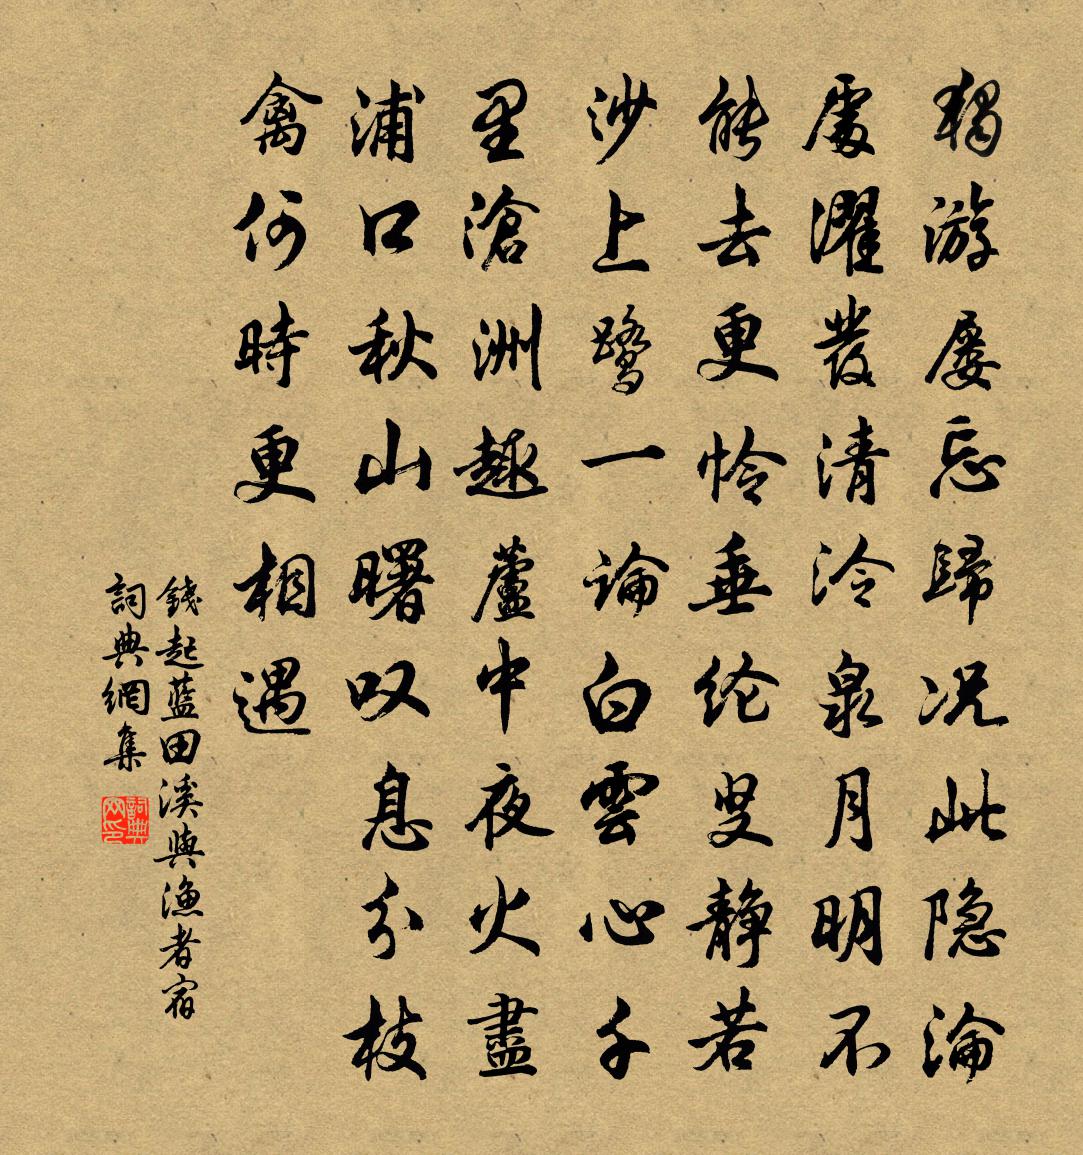 獨游屢忘歸况此隐淪
處濯發清泠泉月明不
能去更怜垂纶叟静若
沙上鷺一論白雲心千
里滄洲趣蘆中夜火盡
浦口秋山曙叹息分枝
禽何時更相遇
錢起藍田溪與漁者宿
詞典網集
詞典网印